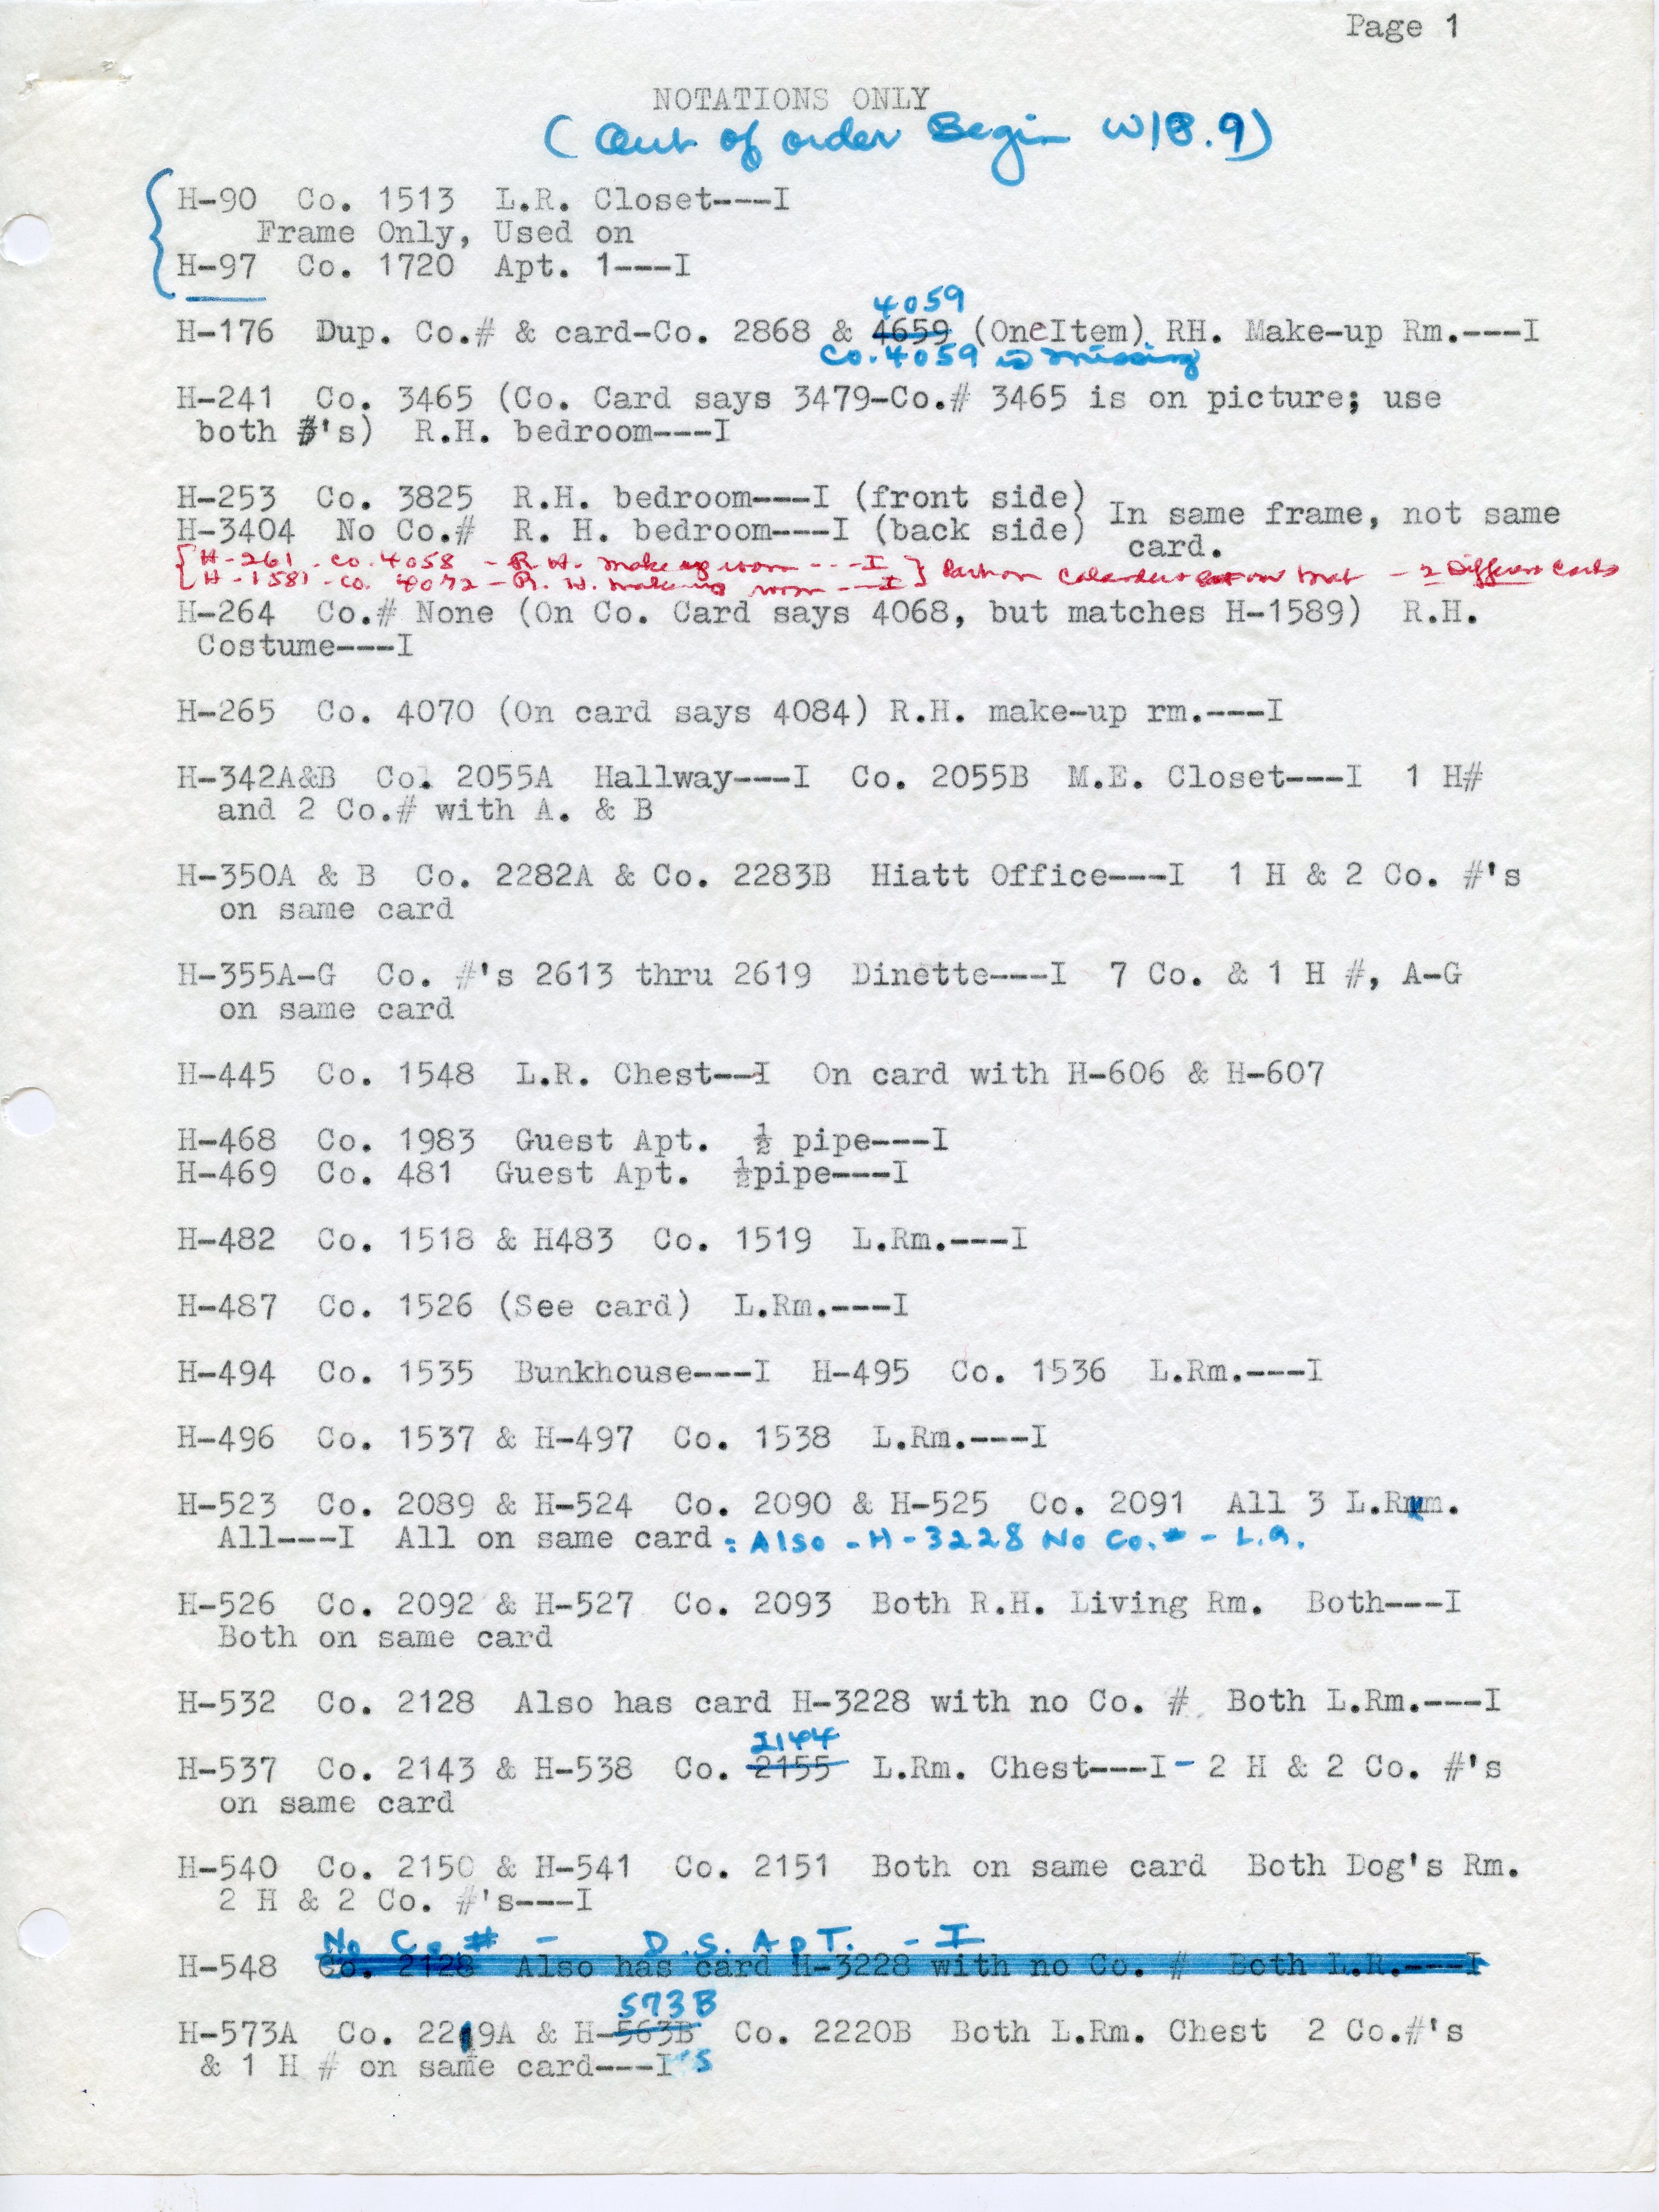 Page 1
NOTATIONS ONLY
(Out of order Begin W/8.9)
H-90 Co. 1513 L.R. Closet---I
Frame Only, Used on
H-97 Co. 1720 Apt. 1---I
4059
H-176 Dup. Co.# & card-Co. 2868 & 4659 (OneItem) RH. Make-up Rm.---I
Co. 4059 is missing
H-241 Co. 3465 (Co. Card says 3479-Co.# 3465 is on picture; use
both #'s) R.H. bedroom---I
H-253 Co. 3825 R.H. bedroom---I (front side) In same frame, not same
H-3404 No Co.# R. H. bedroom---I (back side) card.
{H-261 - Co. 4058 - R.H. make up room --- I }
{H-1581 - Co. 4072 - R.H. make up room --- I } - 2 Different Cards
H-264 Co.# None (On Co. Card says 4068, but matches H-1589) R.H.
Costume---I
H-265 Co. 4070 (On card says 4084) R.H. make-up rm.---I
H-342A&B Co. 2055A Hallway---I Co. 2055B M.E. Closet---I 1 H#
and 2 Co.# with A. & B
H-350A & B Co. 2282A & Co. 2283B Hiatt Office---I 1 H & 2 Co. #'s
on same card
H-355A-G Co. #'s 2613 thru 2619 Dinette---I 7 Co. & 1 H #, A-G
on same card
H-445 Co. 1548 L.R. Chest--I On card with H-606 & H-607
H-468 Co. 1983 Guest Apt. ½ pipe---I
H-469 Co. 481 Guest Apt. ½pipe---I
H-482 Co. 1518 & H483 Co. 1519 L.Rm.---I
H-487 Co. 1526 (See card) L.Rm.---I
H-494 Co. 1535 Bunkhouse---I H-495 Co. 1536 L.Rm.---I
H-496 Co. 1537 & H-497 Co. 1538 L.Rm.---I
H-523 Co. 2089 & H-524 Co. 2090 & H-525 Co. 2091 All 3 L.Rm.
All---I All on same card: Also - H-3228 No Co.# - L.R.
H-526 Co. 2092 & H-527 Co. 2093 Both R.H. Living Rm. Both---I
Both on same card
H-532 Co. 2128 Also has card H-3228 with no Co. # Both L.Rm.---I
2144
H-537 Co. 2143 & H-538 Co. 2155 L.Rm. Chest---I- 2 H & 2 Co. #'s
on same card
H-540 Co. 2150 & H-541 Co. 2151 Both on same card Both Dog's Rm.
2 H & 2 Co. #'s---I
No Co # - D.S. ApT. - I
H-548 Co. 2128 Also has card H-3228 with no Co. # Both L.R.---I
573B
H-573A Co. 2219A & H-563B Co. 2220B Both L.Rm. Chest 2 Co.#'s
& 1 H # on same card---I's